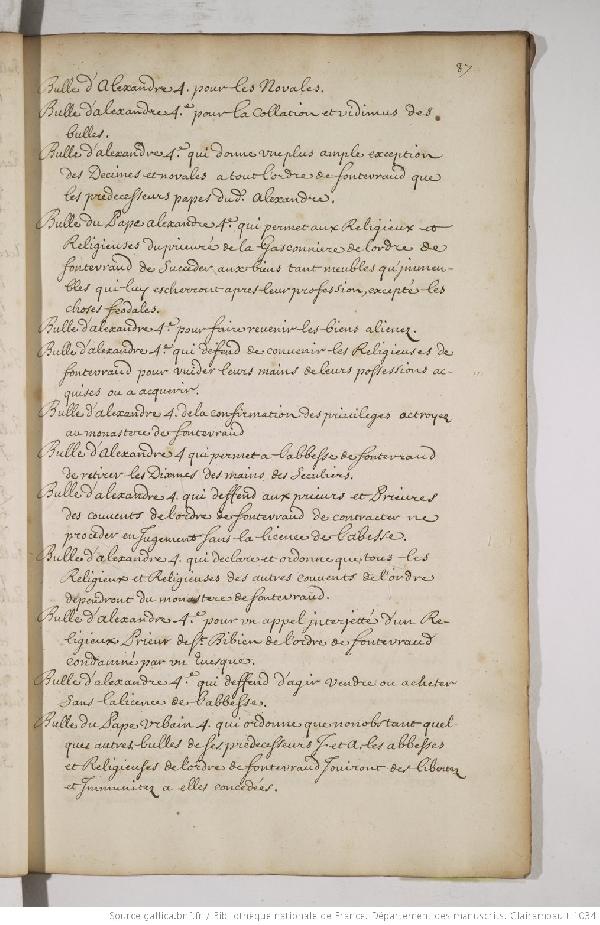 87
Bulle d'Alexandre 4. pour les Novales.
Bulle d'alexandre 4.e pour la Collation et vidimus des
bulles.
Bulle d'alexandre 4.e qui donne vne plus ample exception
des Decimes et novales a tout l'ordre de fontevraud que
les predecesseurs papes dud. Alexandre.
Bulle du Pape alexandre 4.e qui permet aux Religieux et
Religieuses du prieuré de la Gasconniere de l'ordre de
fontevraud de Succeder aux biens tant meubles qu'immeu-
bles qui luy escherront apres leur profession, excepté les
choses feodales.
Bulle d'alexandre 4.e pour faire revenir les biens alienez.
Bulle d'alexandre 4.e qui deffend de convenir les Religieuses de
fontevraud pour vuider leurs mains de leurs possessions ac-
quises ou a acquerir.
Bulle d'alexandre 4. de la confirmation des privileges octroyez
au monastere de fontevraud
Bulle d'Alexandre 4 qui permet a l'abbesse de fontevraud
de retirer les Dixmes des mains des Seculiers.
Bulle d'alexandre 4. qui deffend aux prieurs et Prieures
des couvents de l'ordre de fontevraud de contracter ne
proceder en Jugement sans la licence de l'abesse.
Bulle d'alexandre 4. qui declare et ordonne que tous les
Religieux et Religieuses des autres couvents de l'ordre
dependront du monastere de fontevraud.
Bulle d'alexandre 4.e pour vn appel interjetté d'un Re-
ligieux Prieur de St. Bibien de l'ordre de fontevraud
condamné par vn Evesque.
Bulle d'alexandre 4.e qui deffend d'agir vendre ou acheter
sans la licence de l'abbesse.
Bulle du Pape Vrbain 4. qui ordonne que nonobstant quel
ques autres bulles de ses predecesseurs J. et A. les abbesses
et Religieuses de l'ordre de fontevraud Joüiront des libertez
et Jmmunitez a elles concedées.
Source gallica.bnf.fr / Bibliothèque nationale de France. Département des manuscrits. Clairambault 1034